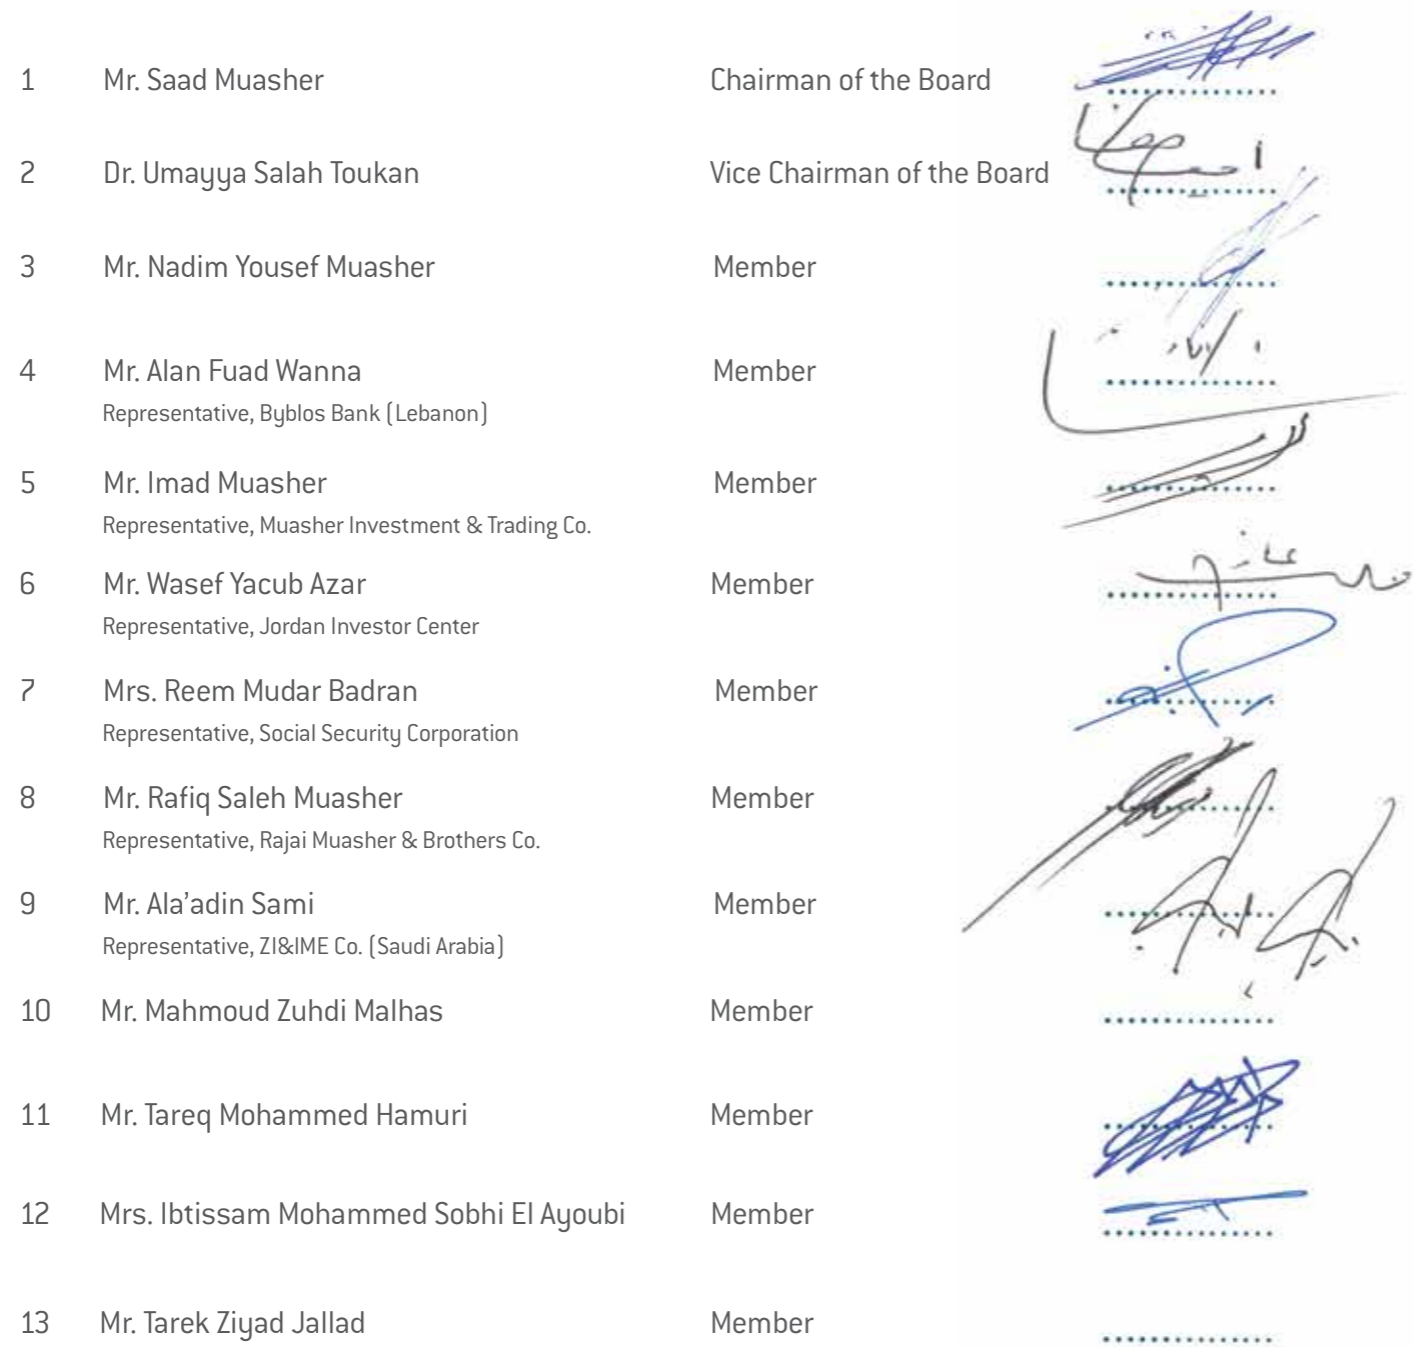 1 Mr. Saad Muasher Chairman of the Board
2 Dr. Umayya Salah Toukan Vice Chairman of the Board
3 Mr. Nadim Yousef Muasher Member
4 Mr. Alan Fuad Wanna Member
Representative, Byblos Bank (Lebanon)
5 Mr. Imad Muasher Member
Representative, Muasher Investment & Trading Co.
6 Mr. Wasef Yacub Azar Member
Representative, Jordan Investor Center
7 Mrs. Reem Mudar Badran Member
Representative, Social Security Corporation
8 Mr. Rafiq Saleh Muasher Member
Representative, Rajai Muasher & Brothers Co.
9 Mr. Ala’adin Sami Member
Representative, ZI&IME Co. (Saudi Arabia)
10 Mr. Mahmoud Zuhdi Malhas Member
11 Mr. Tareq Mohammed Hamuri Member
12 Mrs. Ibtissam Mohammed Sobhi El Ayoubi Member
13 Mr. Tarek Ziyad Jallad Member